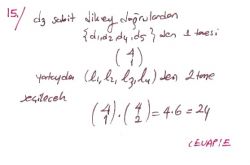 15/ d3 sabit dikey doğrulardan
{d1,d2,d4,d5} den 1 tanesi
(4 1)
yataydan (l1, l2, l3, l4) den 2 tane
seçilecek
(4 1) . (4 2) = 4.6 = 24
CEVAP: E